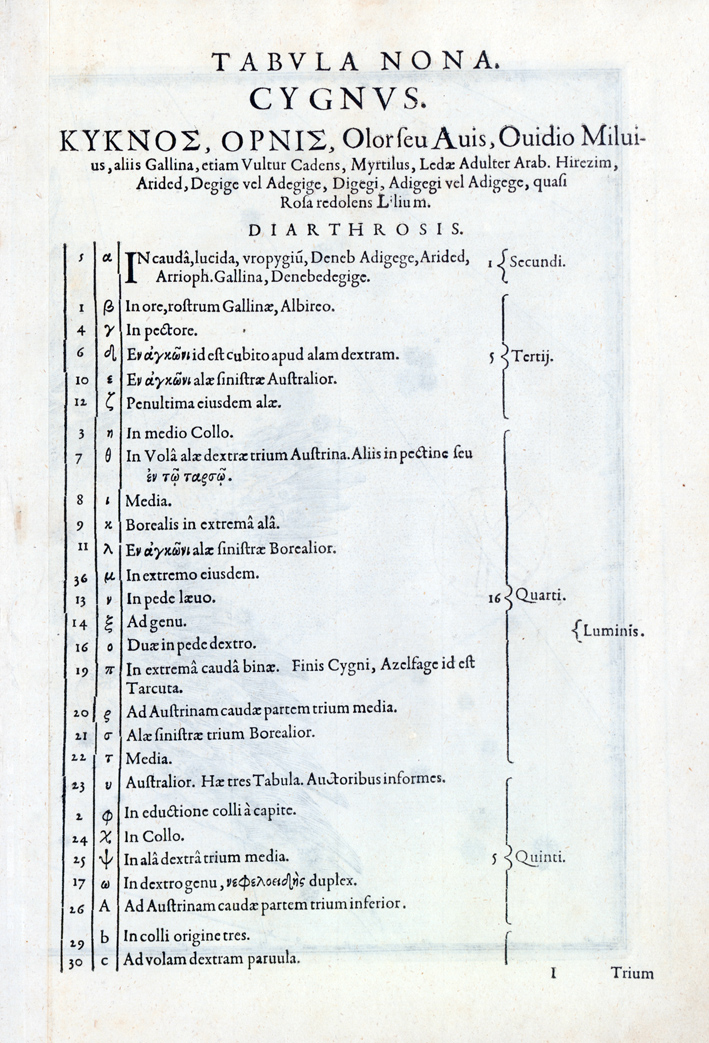 TABVLA NONA.
CYGNVS.
ΚΥΚΝΟΣ, ΟΡΝΙΣ, Olor ſeu Auis, Ouidio Milui-
us, aliis Gallina, etiam Vultur Cadens, Myrtilus, Ledæ Adulter Arab. Hirezim,
Arided, Degige vel Adegige, Digegi, Adigegi vel Adigege, quaſi
Roſa redolens Lilium.
DIARTHROSIS.
5 α IN caudâ, lucida, vropygiũ, Deneb Adigege, Arided, 1 { Secundi.
Arrioph. Gallina, Denebedegige.
1 β In ore, roſtrum Gallinæ, Albireo.
4 γ In pectore.
6 δ Εν ἀγκῶνι id eſt cubito apud alam dextram. 5 { Tertij.
10 ε Εν ἀγκῶνι alæ ſiniſtræ Auſtralior.
12 ζ Penultima eiusdem alæ.
3 η In medio Collo.
7 θ In Volâ alæ dextræ trium Auſtrina. Aliis in pectine ſeu
ἐν τῷ ταρσῷ.
8 ι Media.
9 κ Borealis in extremâ alâ.
11 λ Εν ἀγκῶνι alæ ſiniſtræ Borealior.
36 μ In extremo eiusdem.
13 ν In pede læuo. 16 { Quarti.
14 ξ Ad genu.
{ Luminis.
16 ο Duæ in pede dextro.
19 π In extremâ caudâ binæ. Finis Cygni, Azelfage id eſt
Tarcuta.
20 ρ Ad Auſtrinam caudæ partem trium media.
21 σ Alæ ſiniſtræ trium Borealior.
22 τ Media.
23 υ Auſtralior. Hæ tres Tabula. Auctoribus informes.
2 φ In eductione colli à capite.
24 χ In Collo.
25 ψ In alâ dextrâ trium media. 5 { Quinti.
17 ω In dextro genu, νεφελοειδὴς duplex.
26 A Ad Auſtrinam caudæ partem trium inferior.
29 b In colli origine tres.
30 c Ad volam dextram paruula.
I Trium